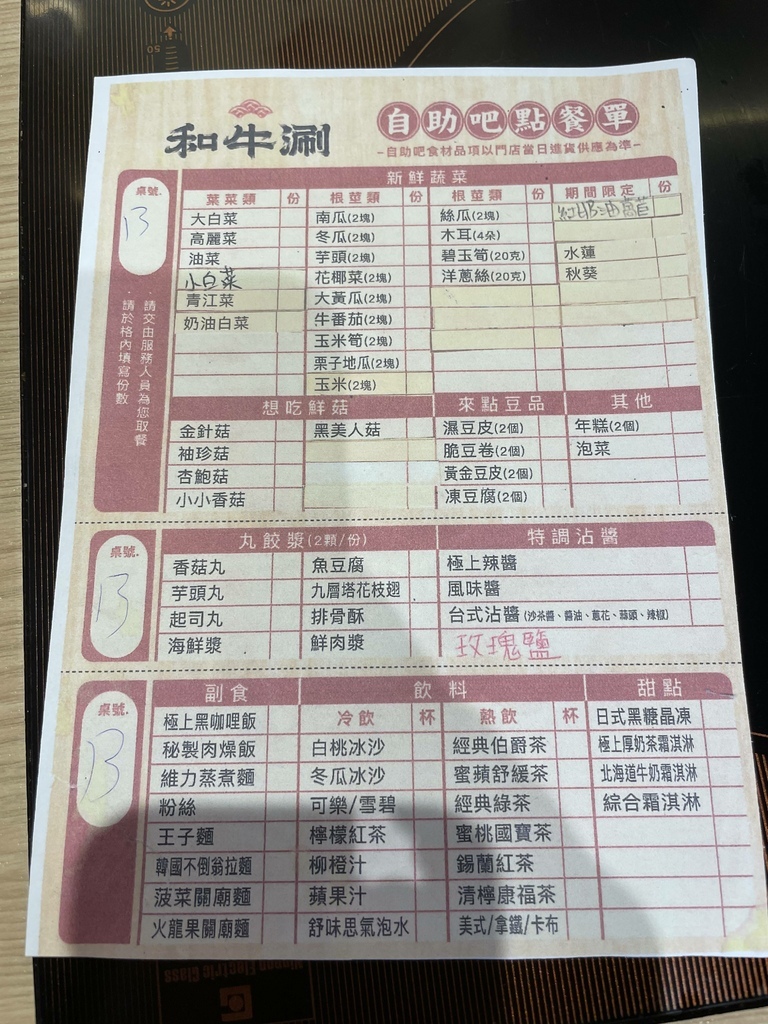 和牛涮 自助吧點餐單
-自助吧食材品項以門店當日進貨供應為準-
桌號
13
·請交由服務人員為您取餐
·請於格內填寫份數
新鮮蔬菜
葉菜類 份 根莖類 份 根莖類 份 期間限定 份
大白菜 南瓜(2塊) 絲瓜(2塊)
高麗菜 冬瓜(2塊) 木耳(4朵)
油菜 芋頭(2塊) 碧玉筍(20克) 水蓮
小白菜 花椰菜(2塊) 洋蔥絲(20克) 秋葵
青江菜 大黃瓜(2塊)
奶油白菜 牛番茄(2塊)
玉米筍(2塊)
栗子地瓜(2塊)
玉米(2塊)
想吃鮮菇 來點豆品 其他
金針菇 黑美人菇 濕豆皮(2個) 年糕(2個)
袖珍菇 脆豆卷(2個) 泡菜
杏鮑菇 黃金豆皮(2個)
小小香菇 凍豆腐(2個)
桌號.
13
丸餃漿(2顆/份) 特調沾醬
香菇丸 魚豆腐 極上辣醬
芋頭丸 九層塔花枝翅 風味醬
起司丸 排骨酥 台式沾醬(沙茶醬、醬油、蔥花、蒜頭、辣椒)
海鮮漿 鮮肉漿 玫瑰鹽
桌號.
13
副食 飲料 甜點
冷飲 杯 熱飲 杯
極上黑咖哩飯 日式黑糖晶凍
秘製肉燥飯 白桃冰沙 經典伯爵茶 極上厚奶茶霜淇淋
維力蒸煮麵 冬瓜冰沙 蜜蘋舒緩茶 北海道牛奶霜淇淋
粉絲 可樂/雪碧 經典綠茶 綜合霜淇淋
王子麵 檸檬紅茶 蜜桃國寶茶
韓國不倒翁拉麵 柳橙汁 錫蘭紅茶
菠菜關廟麵 蘋果汁 清檸康福茶
火龍果關廟麵 舒味思氣泡水 美式/拿鐵/卡布